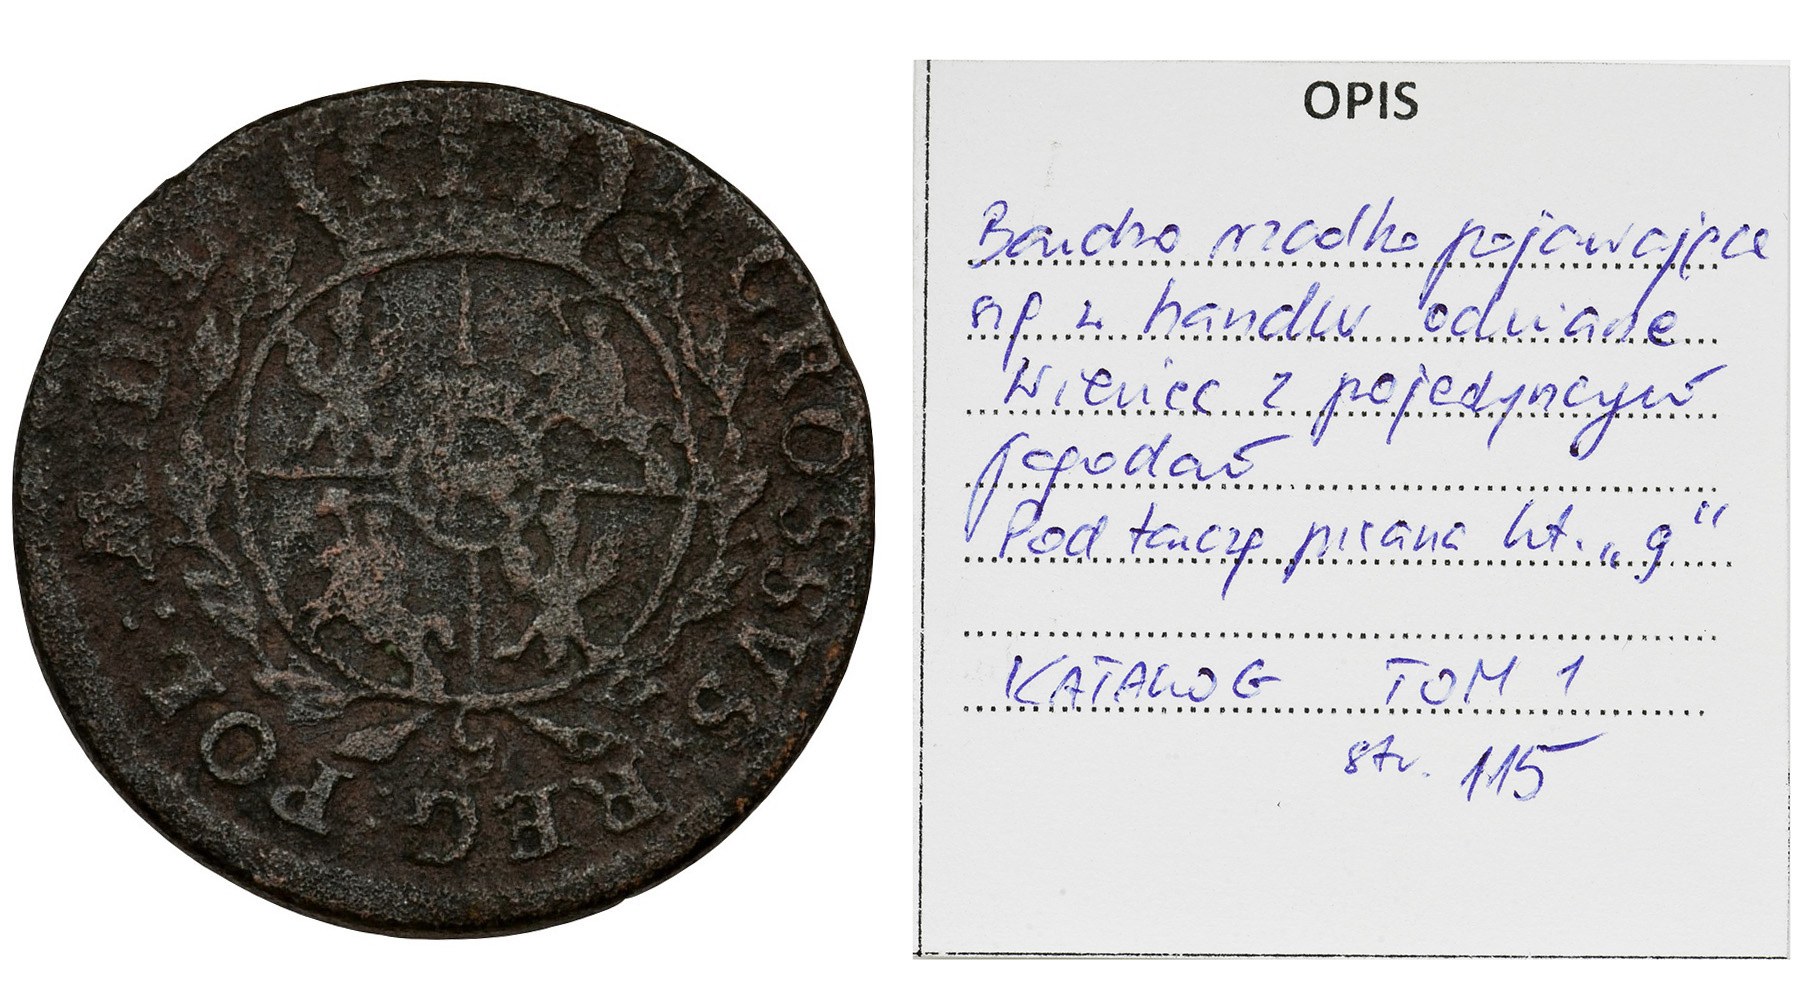 III GROSSVS REG POL
g
OPIS
Bardzo rzadko pojawiające
się w handlu odmiana
Wieniec z pojedynczym
jagodam
Pod tarczą pisana lit. „g"
KATALOG TOM 1
str. 115